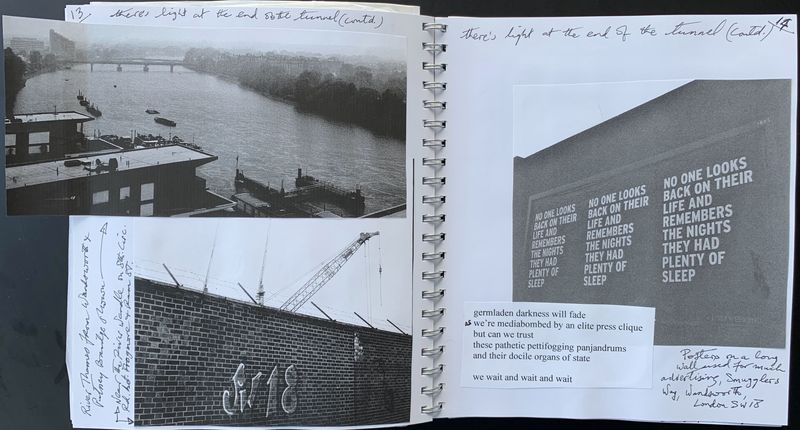 13/ there's light at the end of the tunnel (contd)
River Thames from Wandsworth &
Putney Bridge shown
Near the River Wandle on Sth. Circ.
Rd. Nr Frogmore & Ram St.
there's light at the end of the tunnel (contd.) 14
NO ONE LOOKS
BACK ON THEIR
LIFE AND
REMEMBERS
THE NIGHTS
THEY HAD
PLENTY OF
SLEEP
NO ONE LOOKS
BACK ON THEIR
LIFE AND
REMEMBERS
THE NIGHTS
THEY HAD
PLENTY OF
SLEEP
NO ONE LOOKS
BACK ON THEIR
LIFE AND
REMEMBERS
THE NIGHTS
THEY HAD
PLENTY OF
SLEEP
germladen darkness will fade
as we're mediabombed by an elite press clique
but can we trust
these pathetic pettifogging panjandrums
and their docile organs of state
we wait and wait and wait
Posters on a long
wall used for much
advertising, Smugglers
Way, Wandsworth,
London SW18